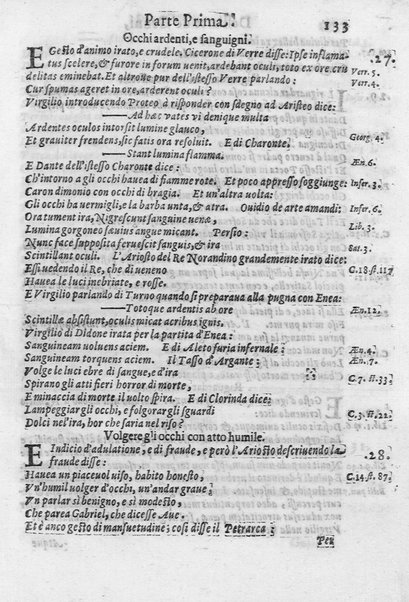 Parte Prima. 133
Occhi ardenti, e sanguigni.
E Gesto d'animo irato, e crudele. Cicerone di Verre disse: Ipse inflama- 27.
tus scelere, & furore in forum uenit, ardebant oculi, toto ex ore cru Verr. 5.
delitas eminebat. Et altroue pur dell'istesso Verre parlando: Verr. 4.
Cur spumas ageret in ore, arderent oculi?
Virgilio introducendo Proteo à risponder con sdegno ad Aristeo dice:
Ad hæc vates vi denique multa
Ardentes oculos intorsit lumine glauco,
Et grauiter frendens, sic fatis ora resoluit. E di Charonte. Georg. 4.
Stant lumina flamma. Æn. 6.
E Dante dell'istesso Charonte dice:
Ch'intorno a gli occhi hauea di fiamme rote. Et poco appresso soggiunge: Infer. 3.
Caron dimonio con occhi di bragia. Et un'altra uolta:
Gli occhi ha uermigli, e la barba unta, & atra. Ouidio de arte amandi: Infer. 6.
Ora tument ira, Nigrescunt sanguine uenæ, Lib. 3.
Lumina gorgoneo sæuius angue micant. Persio:
Nunc face supposita feruescit sanguis, & ira Sat. 3.
Scintillant oculi. L'Ariosto del Re Norandino grandemente irato dice:
Essi uedendo il Re, che di ueneno C. 18. st. 117
Hauea le luci inebriate, e rosse.
E Virgilio parlando di Turno quando si preparaua alla pugna con Enea:
Totoque ardentis ab ore Æn. 12.
Scintillæ absistunt, oculis micat acribus ignis.
Virgilio di Didone irata per la partita d'Enea:
Sanguineam uoluens aciem. E di Aleto furia infernale: Æn. 4.
Sanguineam torquens aciem. Il Tasso d'Argante: Æn. 7.
Volge le luci ebre di sangue, e d'ira
Spirano gli atti fieri horror di morte, C. 7. st. 53.
E minaccia di morte il uolto spira. E di Clorinda dice:
Lampeggiar gli occhi, e folgorar gli sguardi C. 3. st. 22.
Dolci nel'ira, hor che saria nel riso?
Volgere gli occhi con atto humile.
E Indicio d'adulatione, e di fraude, e però l'Ariosto descriuendo la 28.
fraude disse:
Hauea un piaceuol uiso, habito honesto, C. 14. st. 87.
Vn'humil uolger d'occhi, un'andar graue;
Vn parlar sì benigno, e sì modesto,
Che parea Gabriel, che dicesse Aue.
Et è anco gesto di mansuetudine; così disse il Petrarca:
Pei